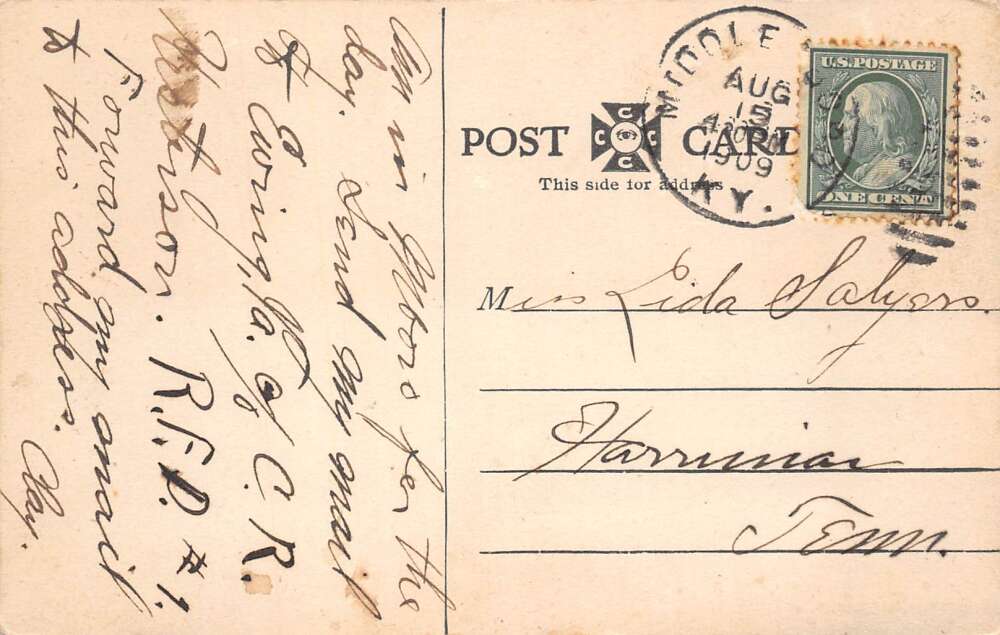 Am in M'boro for the
day. Send my mail
to Ewing, Va. c/o C. R.
Waterson. R.F.D. # 1.
Forward my mail
to this address. Clay.
POST CARD
C C C C
This side for address
MIDDLESBORO
AUG
15
1909
KY.
U.S. POSTAGE
ONE CENT
Miss Lida Salyers.
Harriman
Tenn.